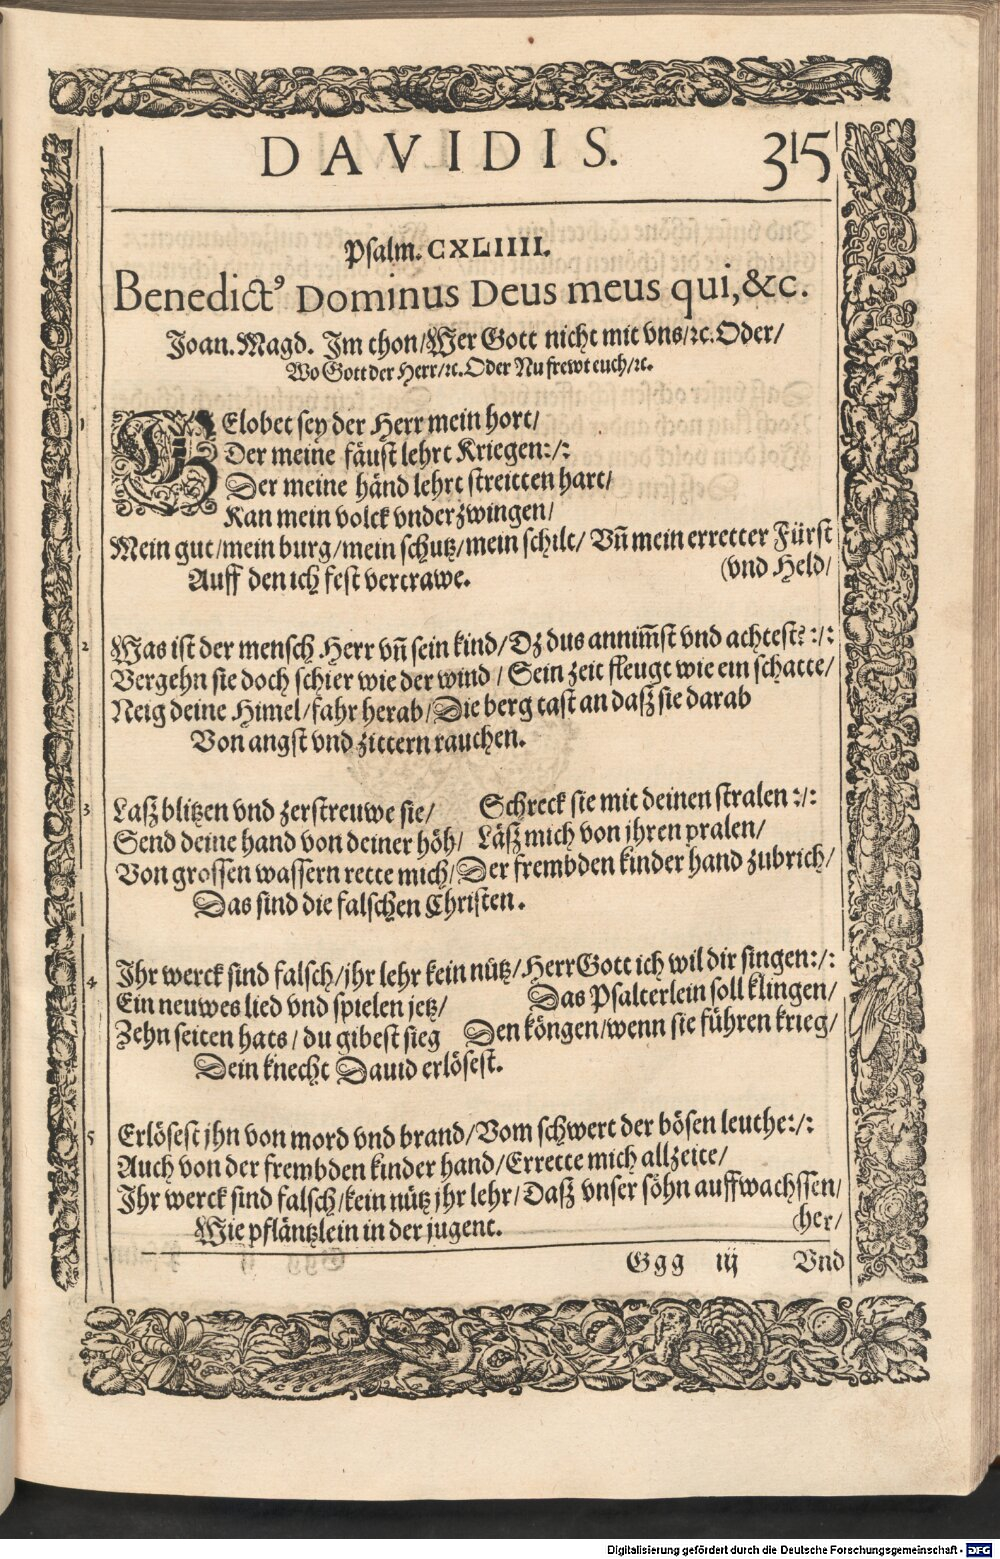 DAVIDIS. 315
Psalm. CXLIIII.
Benedict⁹ Dominus Deus meus qui, &c.
Joan. Magd. Im thon/Wer Gott nicht mit vns/ꝛc. Oder/
Wo Gott der Herr/ꝛc. Oder Nu frewt euch/ꝛc.
1 GElobet sey der Herr mein hort/
Der meine fäust lehrt Kriegen:/:
Der meine händ lehrt streitten hart/
Kan mein volck vnderzwingen/
Mein gut/mein burg/mein schutz/mein schilt/ Vñ mein erretter Fürst
Auff den ich fest vertrawe. (vnd Held/
2 Was ist der mensch Herr vñ sein kind/Dz dus annim̃st vnd achtest?:/:
Vergehn sie doch schier wie der wind / Sein zeit fleugt wie ein schatte/
Neig deine Himel/fahr herab/Die berg tast an dasz sie darab
Von angst vnd zittern rauchen.
3 Lasz blitzen vnd zerstreuwe sie/ Schreck sie mit deinen stralen:/:
Send deine hand von deiner höh/ Läsz mich von jhren pralen/
Von grossen wassern rette mich/Der frembden kinder hand zubrich/
Das sind die falschen Christen.
4 Ihr werck sind falsch/jhr lehr kein nütz/Herr Gott ich wil dir singen:/:
Ein neuwes lied vnd spielen jetz/ Das Psalterlein soll klingen/
Zehn seiten hats/du gibest sieg Den köngen/wenn sie führen krieg/
Dein knecht Dauid erlösest.
5 Erlösest jhn von mord vnd brand/Vom schwert der bösen leuthe:/:
Auch von der frembden kinder hand/Errette mich allzeite/
Ihr werck sind falsch/kein nütz jhr lehr/Dasz vnser söhn auffwachssen/
Wie pfläntzlein in der jugent. (her/
Ggg iij Vnd
Digitalisierung gefördert durch die Deutsche Forschungsgemeinschaft - DFG